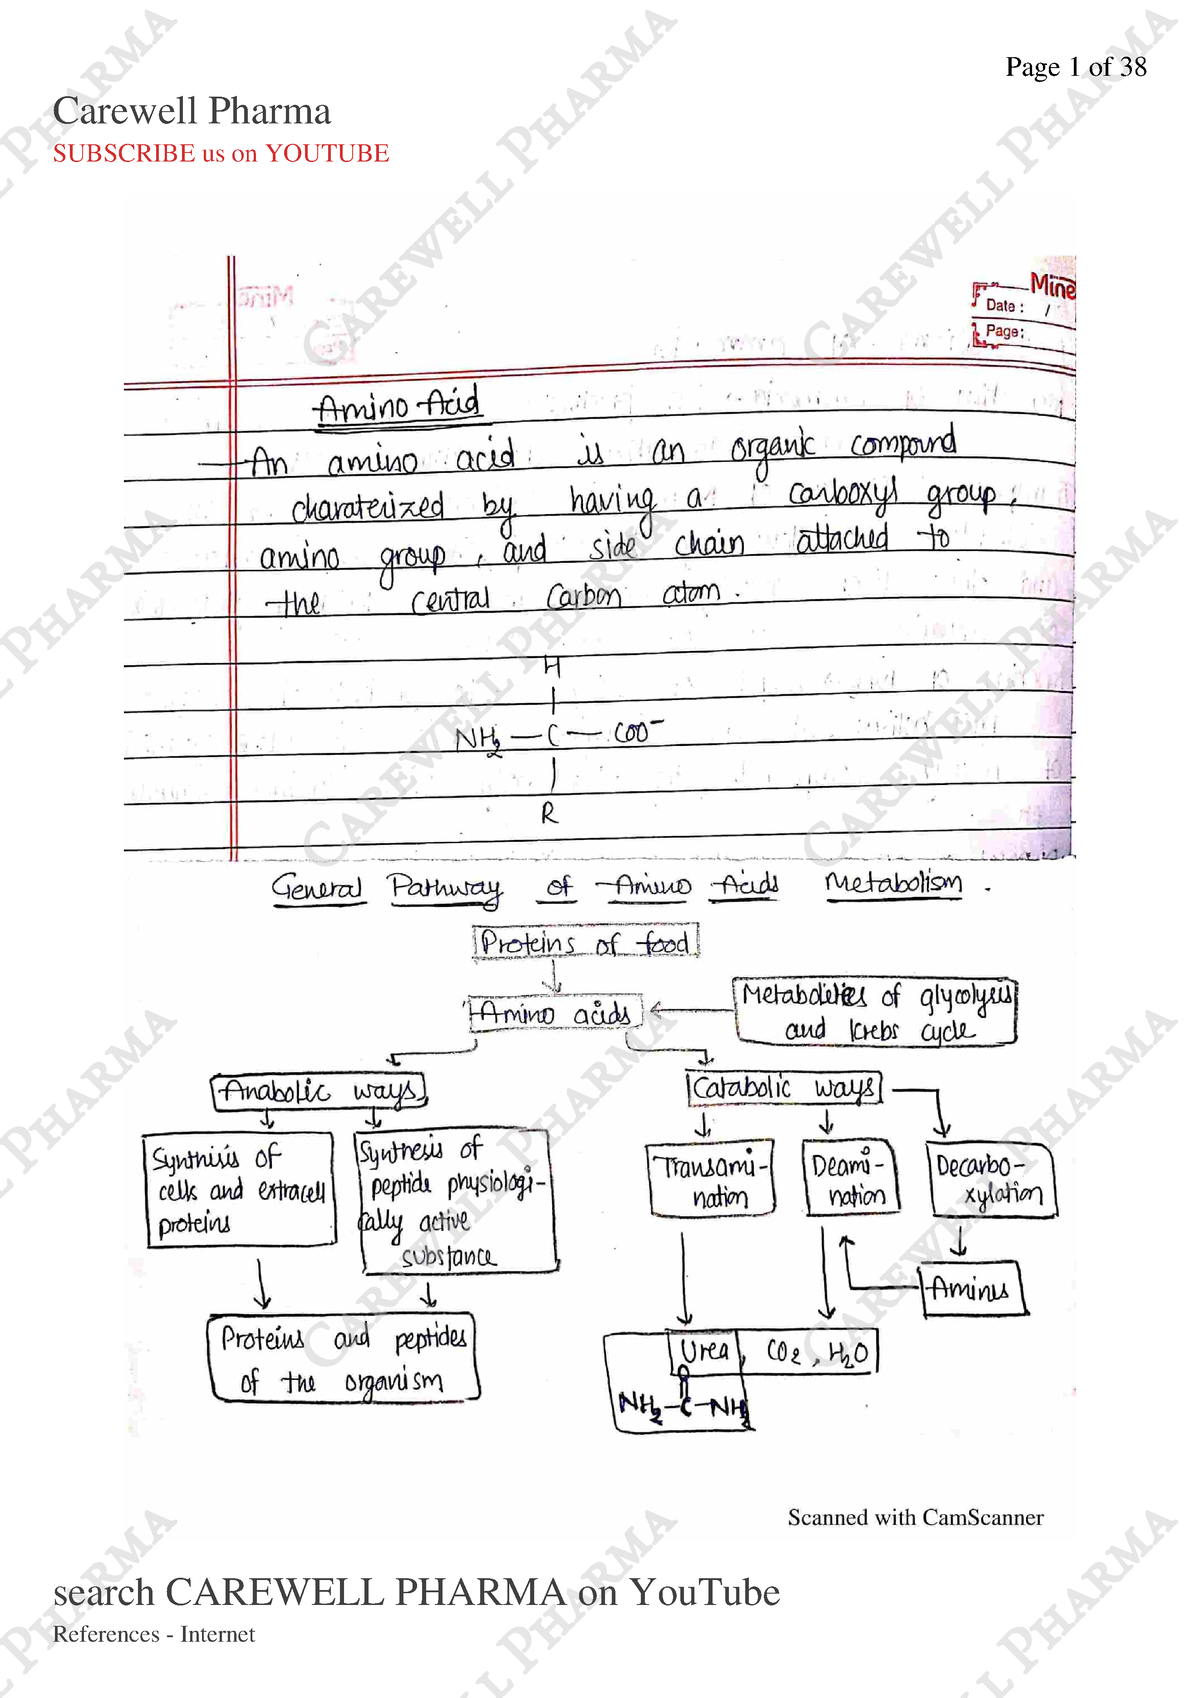 Page 1 of 38
Carewell Pharma
SUBSCRIBE us on YOUTUBE
Mine
Date : /
Page:
Amino Acid
An amino acid is an organic compound
charaterized by having a carboxyl group,
amino group, and side chain attached to
the central carbon atom.
H
NH2 — C — COO⁻
R
General Pathway of Amino Acids Metabolism.
Proteins of food
Amino acids
Metabolites of glycolysis
and krebs cycle
Anabolic ways
Catabolic ways
Synthisis of
cells and extracell
proteins
Synthesis of
peptide physiologi-
cally active
substance
Transami-
nation
Deami-
nation
Decarbo-
xylation
Amines
Proteins and peptides
of the organism
Urea, CO2, H2O
O
NH2-C-NH2
Scanned with CamScanner
search CAREWELL PHARMA on YouTube
References - Internet
CAREWELL PHARMA